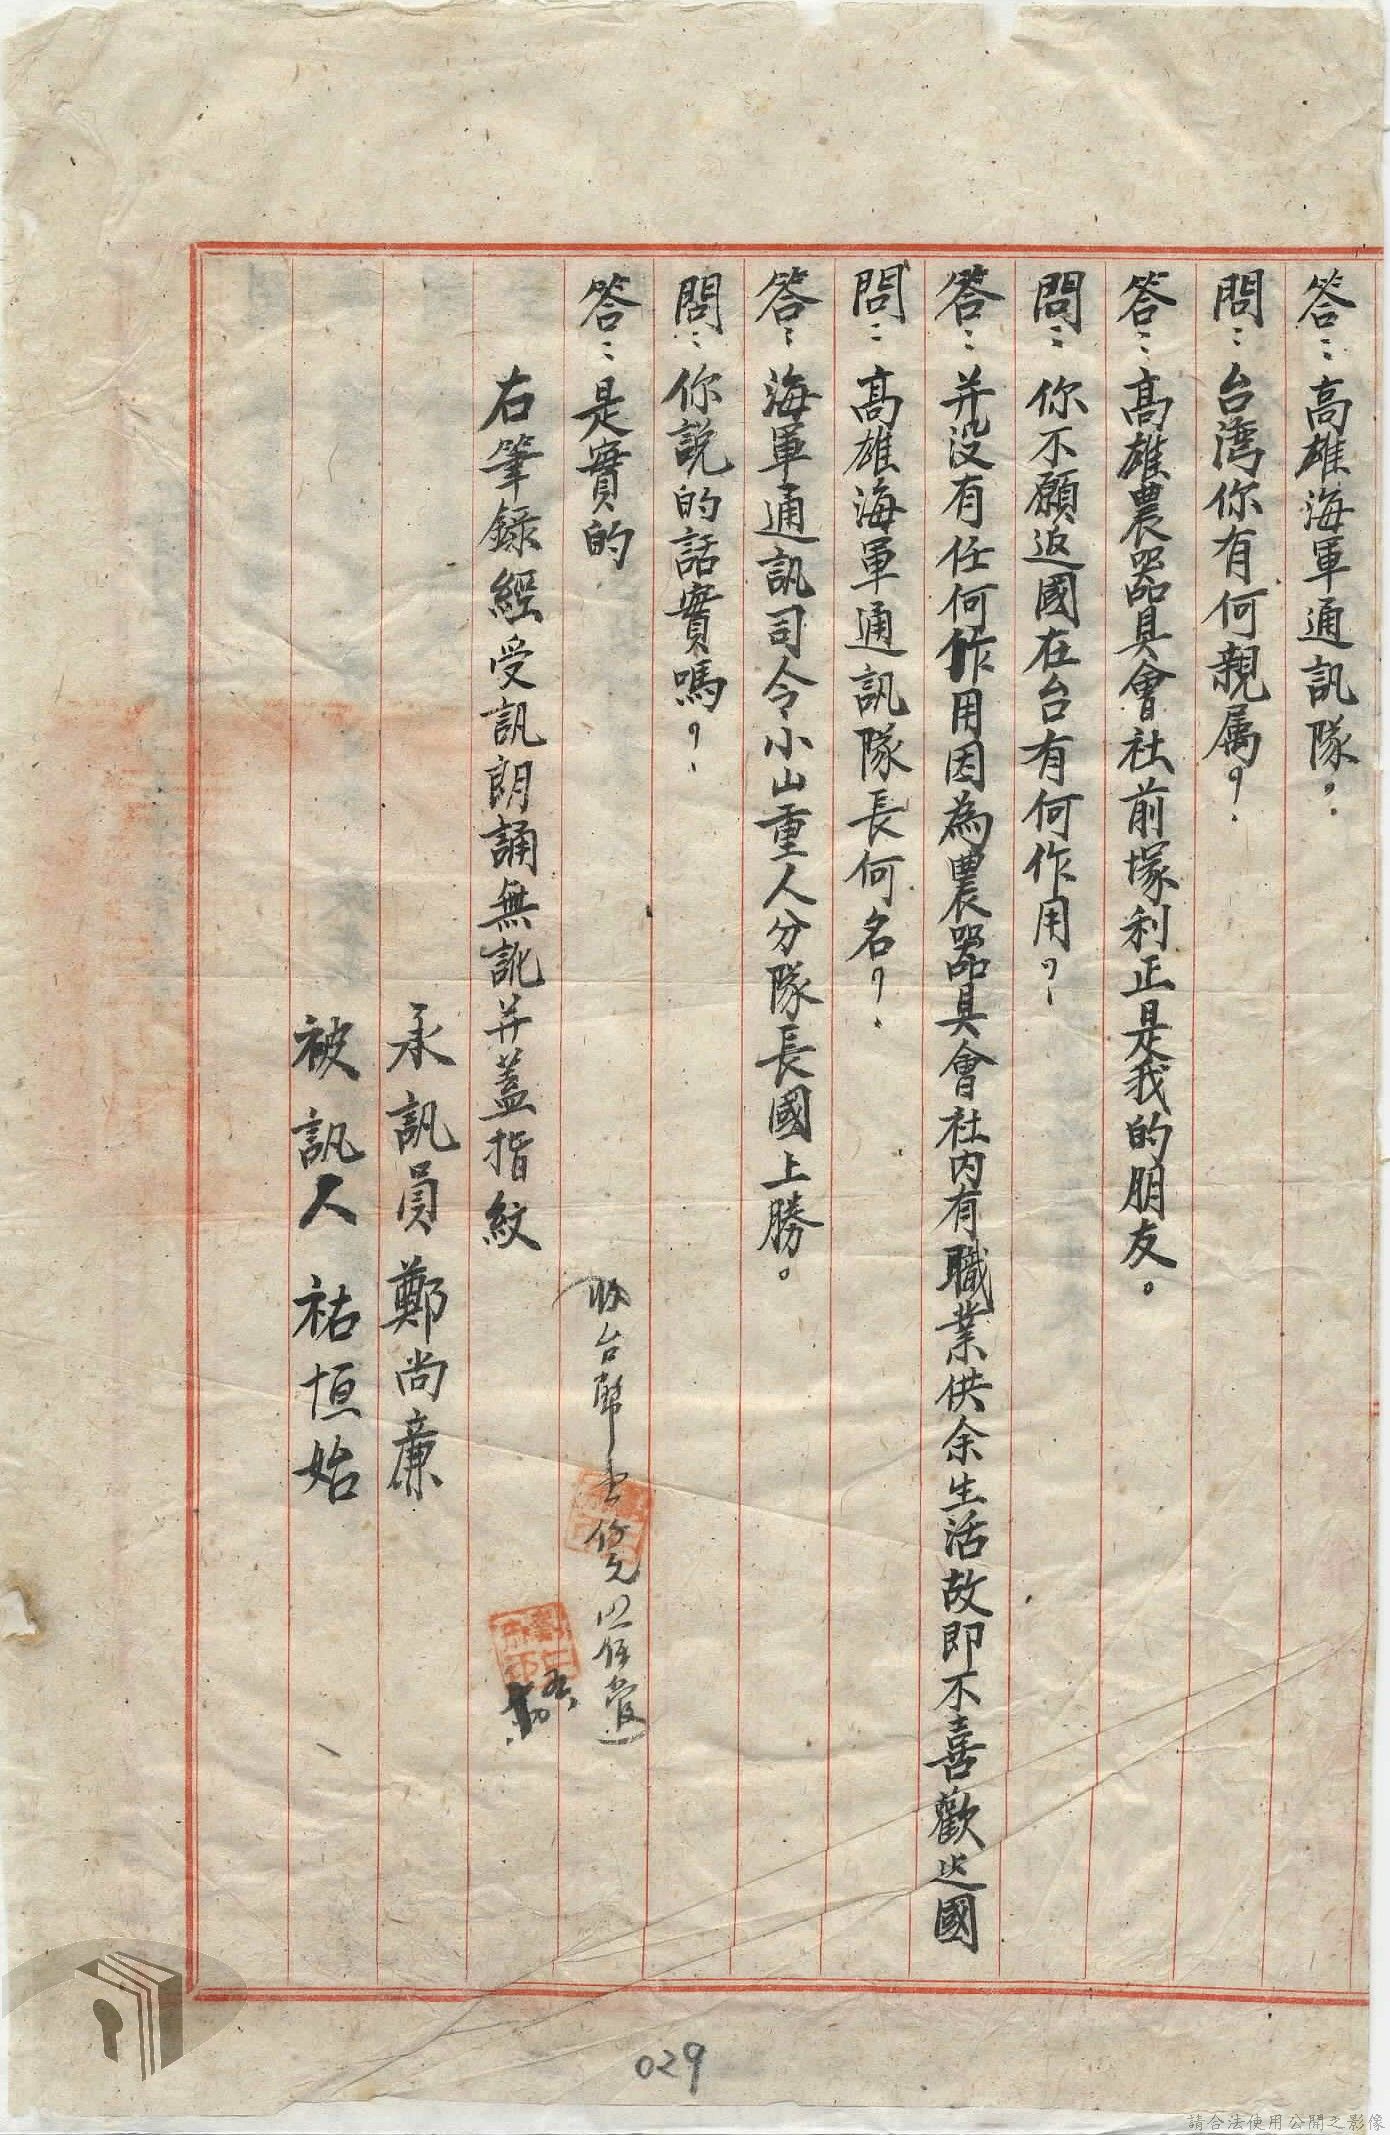 答：高雄海軍通訊隊。
問：台湾你有何親属？
答：高雄農器具會社前塚利正是我的朋友。
問：你不願返國在台有何作用？
答：并没有任何作用因為農器具會社内有職業供余生活故即不喜歡返國
問：高雄海軍通訊隊長何名？
答：海軍通訊司令小山重人分隊長國上勝。
問：你説的話實嗎？
答：是實的
右筆録經受訊朗誦無訛并蓋指紋
承訊員鄭尚廉
被訊人 祐恒始
029
請合法使用公開之影像